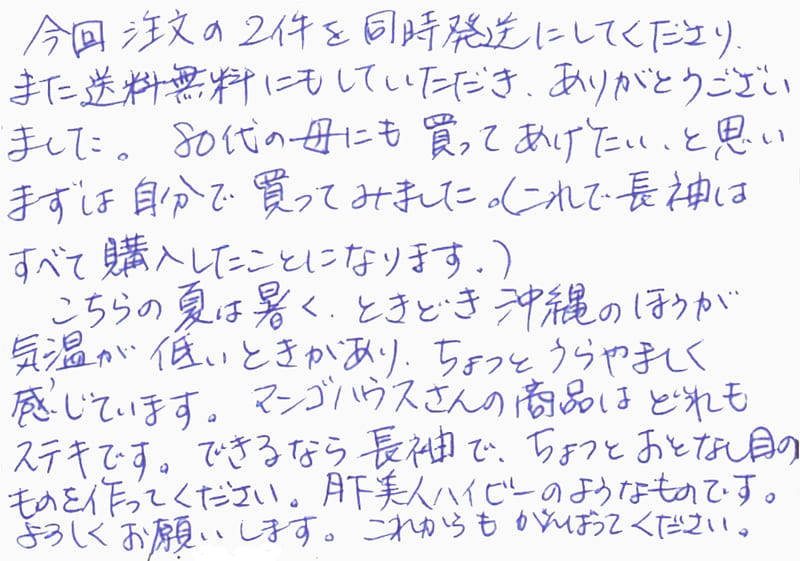 今回 注文の2件を同時発送にしてくださり、
また送料無料にもしていただき、ありがとうござい
ました。 80代の母にも 買ってあげたい、と思い
まずは自分で買ってみました。(これで長袖は
すべて購入したことになります。)
こちらの夏は暑く、ときどき沖縄のほうが
気温が低いときがあり、ちょっとうらやましく
感じています。マンゴハウスさんの商品はどれも
ステキです。できるなら長袖で、ちょっとおとなし目の
ものを作ってください。月下美人ハイビーのようなものです。
よろしくお願いします。これからもがんばってください。